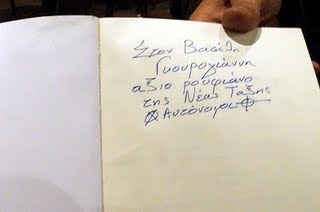 Στον Βασίλη
Γκουρογιάννη
άξιο ρουφιάνο
της Νέας Τάξης
Αυτόνομοι